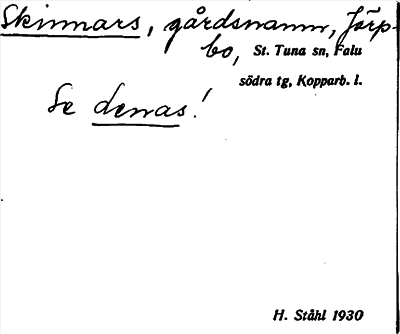 Skinnars, gårdsnamn, Jörp-
bo, St. Tuna sn, Falu
södra tg, Kopparb. l.
Se denas!
H. Ståhl 1930